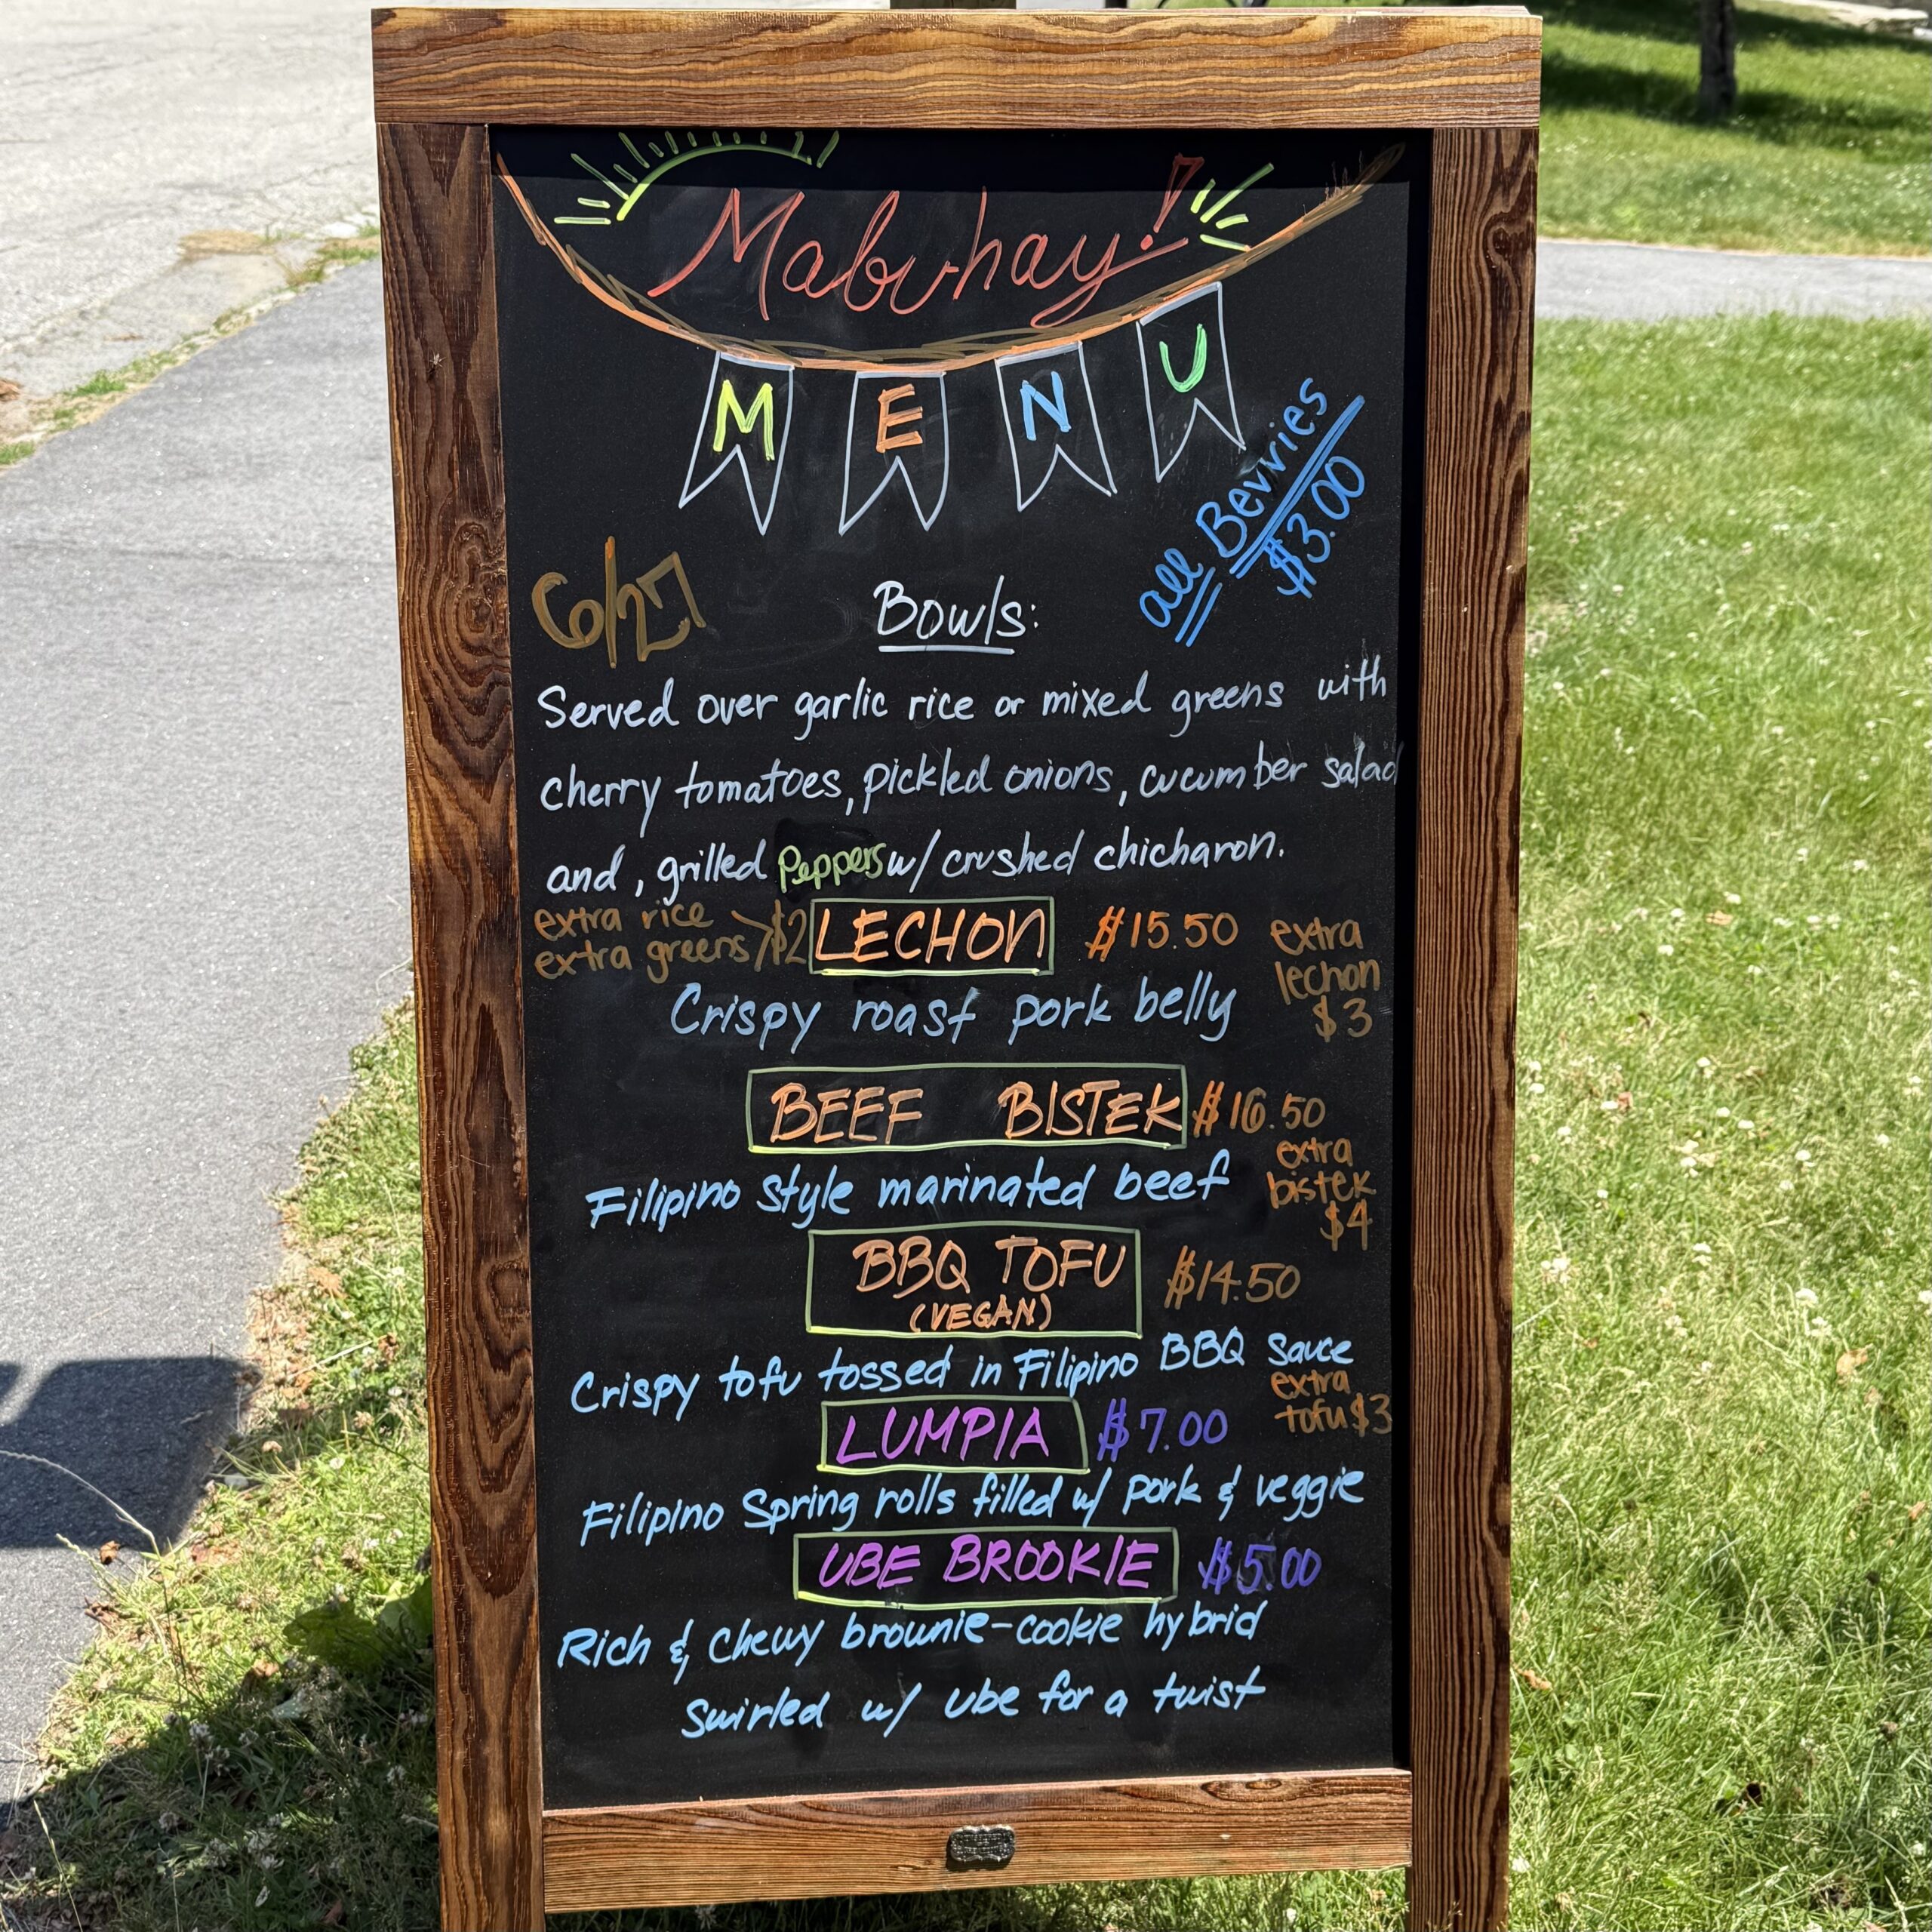 Mabuhay!
MENU
all Bevvies
$3.00
6/27
Bowls:
Served over garlic rice or mixed greens with
cherry tomatoes, pickled onions, cucumber salad
and, grilled Peppers w/ crushed chicharon.
extra rice
extra greens > $2
LECHON $15.50
extra
lechon
$3
Crispy roast pork belly
BEEF BISTEK $16.50
extra
bistek
$4
Filipino Style marinated beef
BBQ TOFU $14.50
(VEGAN)
Crispy tofu tossed in Filipino BBQ Sauce
extra
tofu $3
LUMPIA $7.00
Filipino Spring rolls filled w/ pork & veggie
UBE BROOKIE $5.00
Rich & Chewy brownie-cookie hybrid
Swirled w/ Ube for a twist